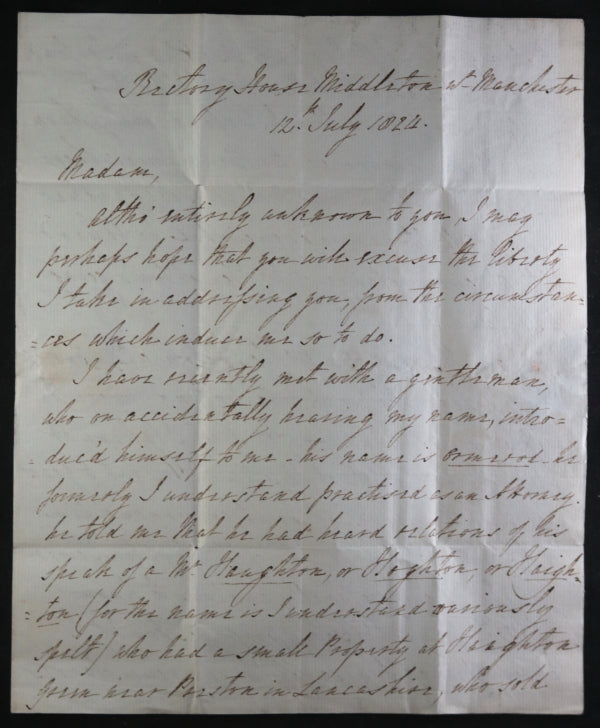 Rectory House Middleton nr Manchester
12th. July 1824.
Madam,
altho' entirely unknown to you, I may
perhaps hope that you will excuse the liberty
I take in addressing you, from the circumstan=
=ces which induce me so to do.
I have recently met with a gentleman,
who on accidentally hearing my name, intro=
=duc'd himself to me - his name is Oomerod he
formerly I understand practised as an Attorney.
he told me that he had heard relations of his
speak of a Mr. Haughton, or Hoghton, or Haigh=
=ton (for the name is I understand variously
spelt) who had a small Property at Haighton
green near Preston in Lancashire, who sold